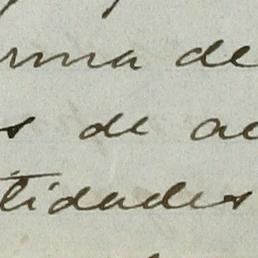 rma de
s de ac
tidades